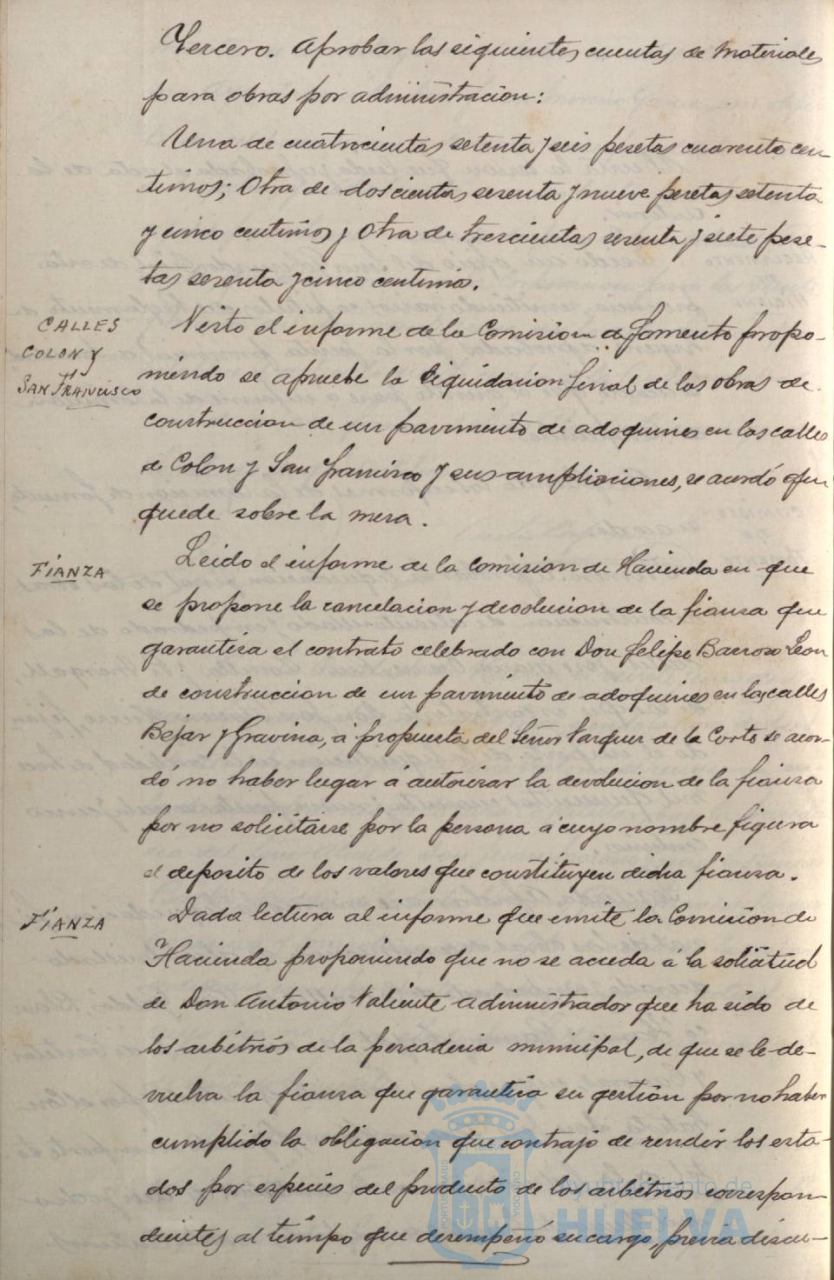 Tercero. Aprobar las siguientes cuentas de materiales
para obras por administracion:
Una de cuatrocientas setenta y seis pesetas cuarenta cen-
timos; Otra de doscientas sesenta y nueve pesetas setenta
y cinco centimos y Otra de trescientas sesenta y siete pese-
tas sesenta y cinco centimos.
CALLES
COLON Y
SAN FRANCISCO
Visto el informe de la Comision de Fomento propo-
niendo se apruebe la liquidacion final de las obras de
construccion de un pavimento de adoquines en las calles
de Colon y San Francisco y sus ampliaciones, se acordó que
quede sobre la mesa.
FIANZA
Leido el informe de la Comision de Hacienda en que
se propone la cancelacion y devolucion de la fianza que
garantiza el contrato celebrado con Don Felipe Barroso Leon
de construccion de un pavimento de adoquines en las calles
Bejar y Gravina, á propuesta del Señor Vazquez de la Corte se acor-
dó no haber lugar á autorizar la devolucion de la fianza
por no solicitarse por la persona á cuyo nombre figura
el deposito de los valores que constituyen dicha fianza.
FIANZA
Dada lectura al informe que emite la Comision de
Hacienda proponiendo que no se acceda á la solicitud
de Don Antonio Valiente administrador que ha sido de
los arbitrios de la pescaderia municipal, de que se le de-
vuelva la fianza que garantiza su gestion por no haber
cumplido la obligacion que contrajo de rendir los esta-
dos por especies del producto de los arbitrios correspon-
dientes al tiempo que desempeñó su cargo, previa discu-
Ayuntamiento de
HUELVA